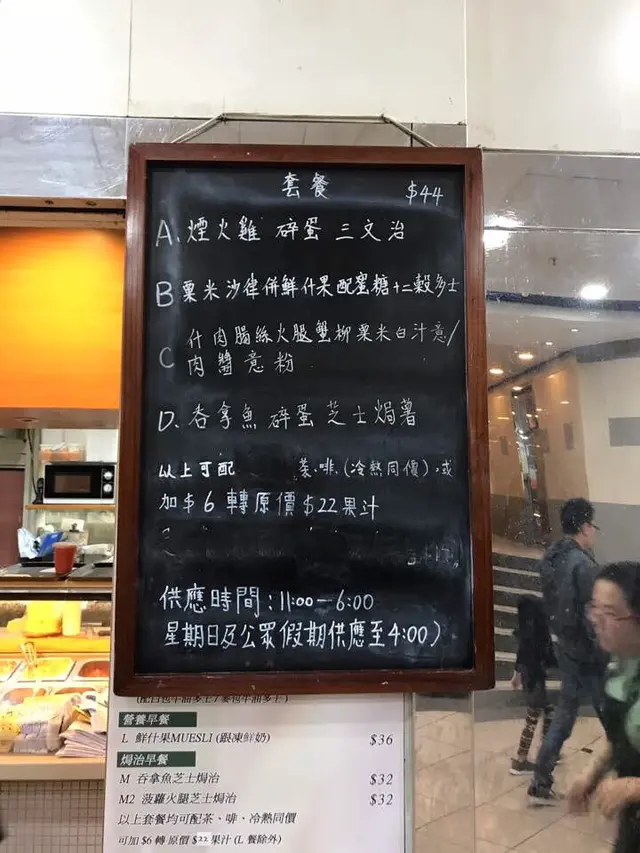 套餐 $44
A. 煙火雞 碎蛋 三文治
B 粟米沙律併鮮什果配蜜糖十二穀多士
C 什肉腸絲火腿蟹柳粟米白汁意/
肉醬意粉
D. 吞拿魚 碎蛋 芝士焗薯
以上可配 茶.啡.(冷熱同價).或
加$6轉原價$22果汁
供應時間:11:00-6:00
星期日及公眾假期供應至4:00)
營養早餐
L 鮮什果MUESLI (跟凍鮮奶) $36
焗治早餐
M 吞拿魚芝士焗治 $32
M2 菠蘿火腿芝士焗治 $32
以上套餐均可配茶、啡、冷熱同價
可加$6轉原價$22果汁(L餐除外)